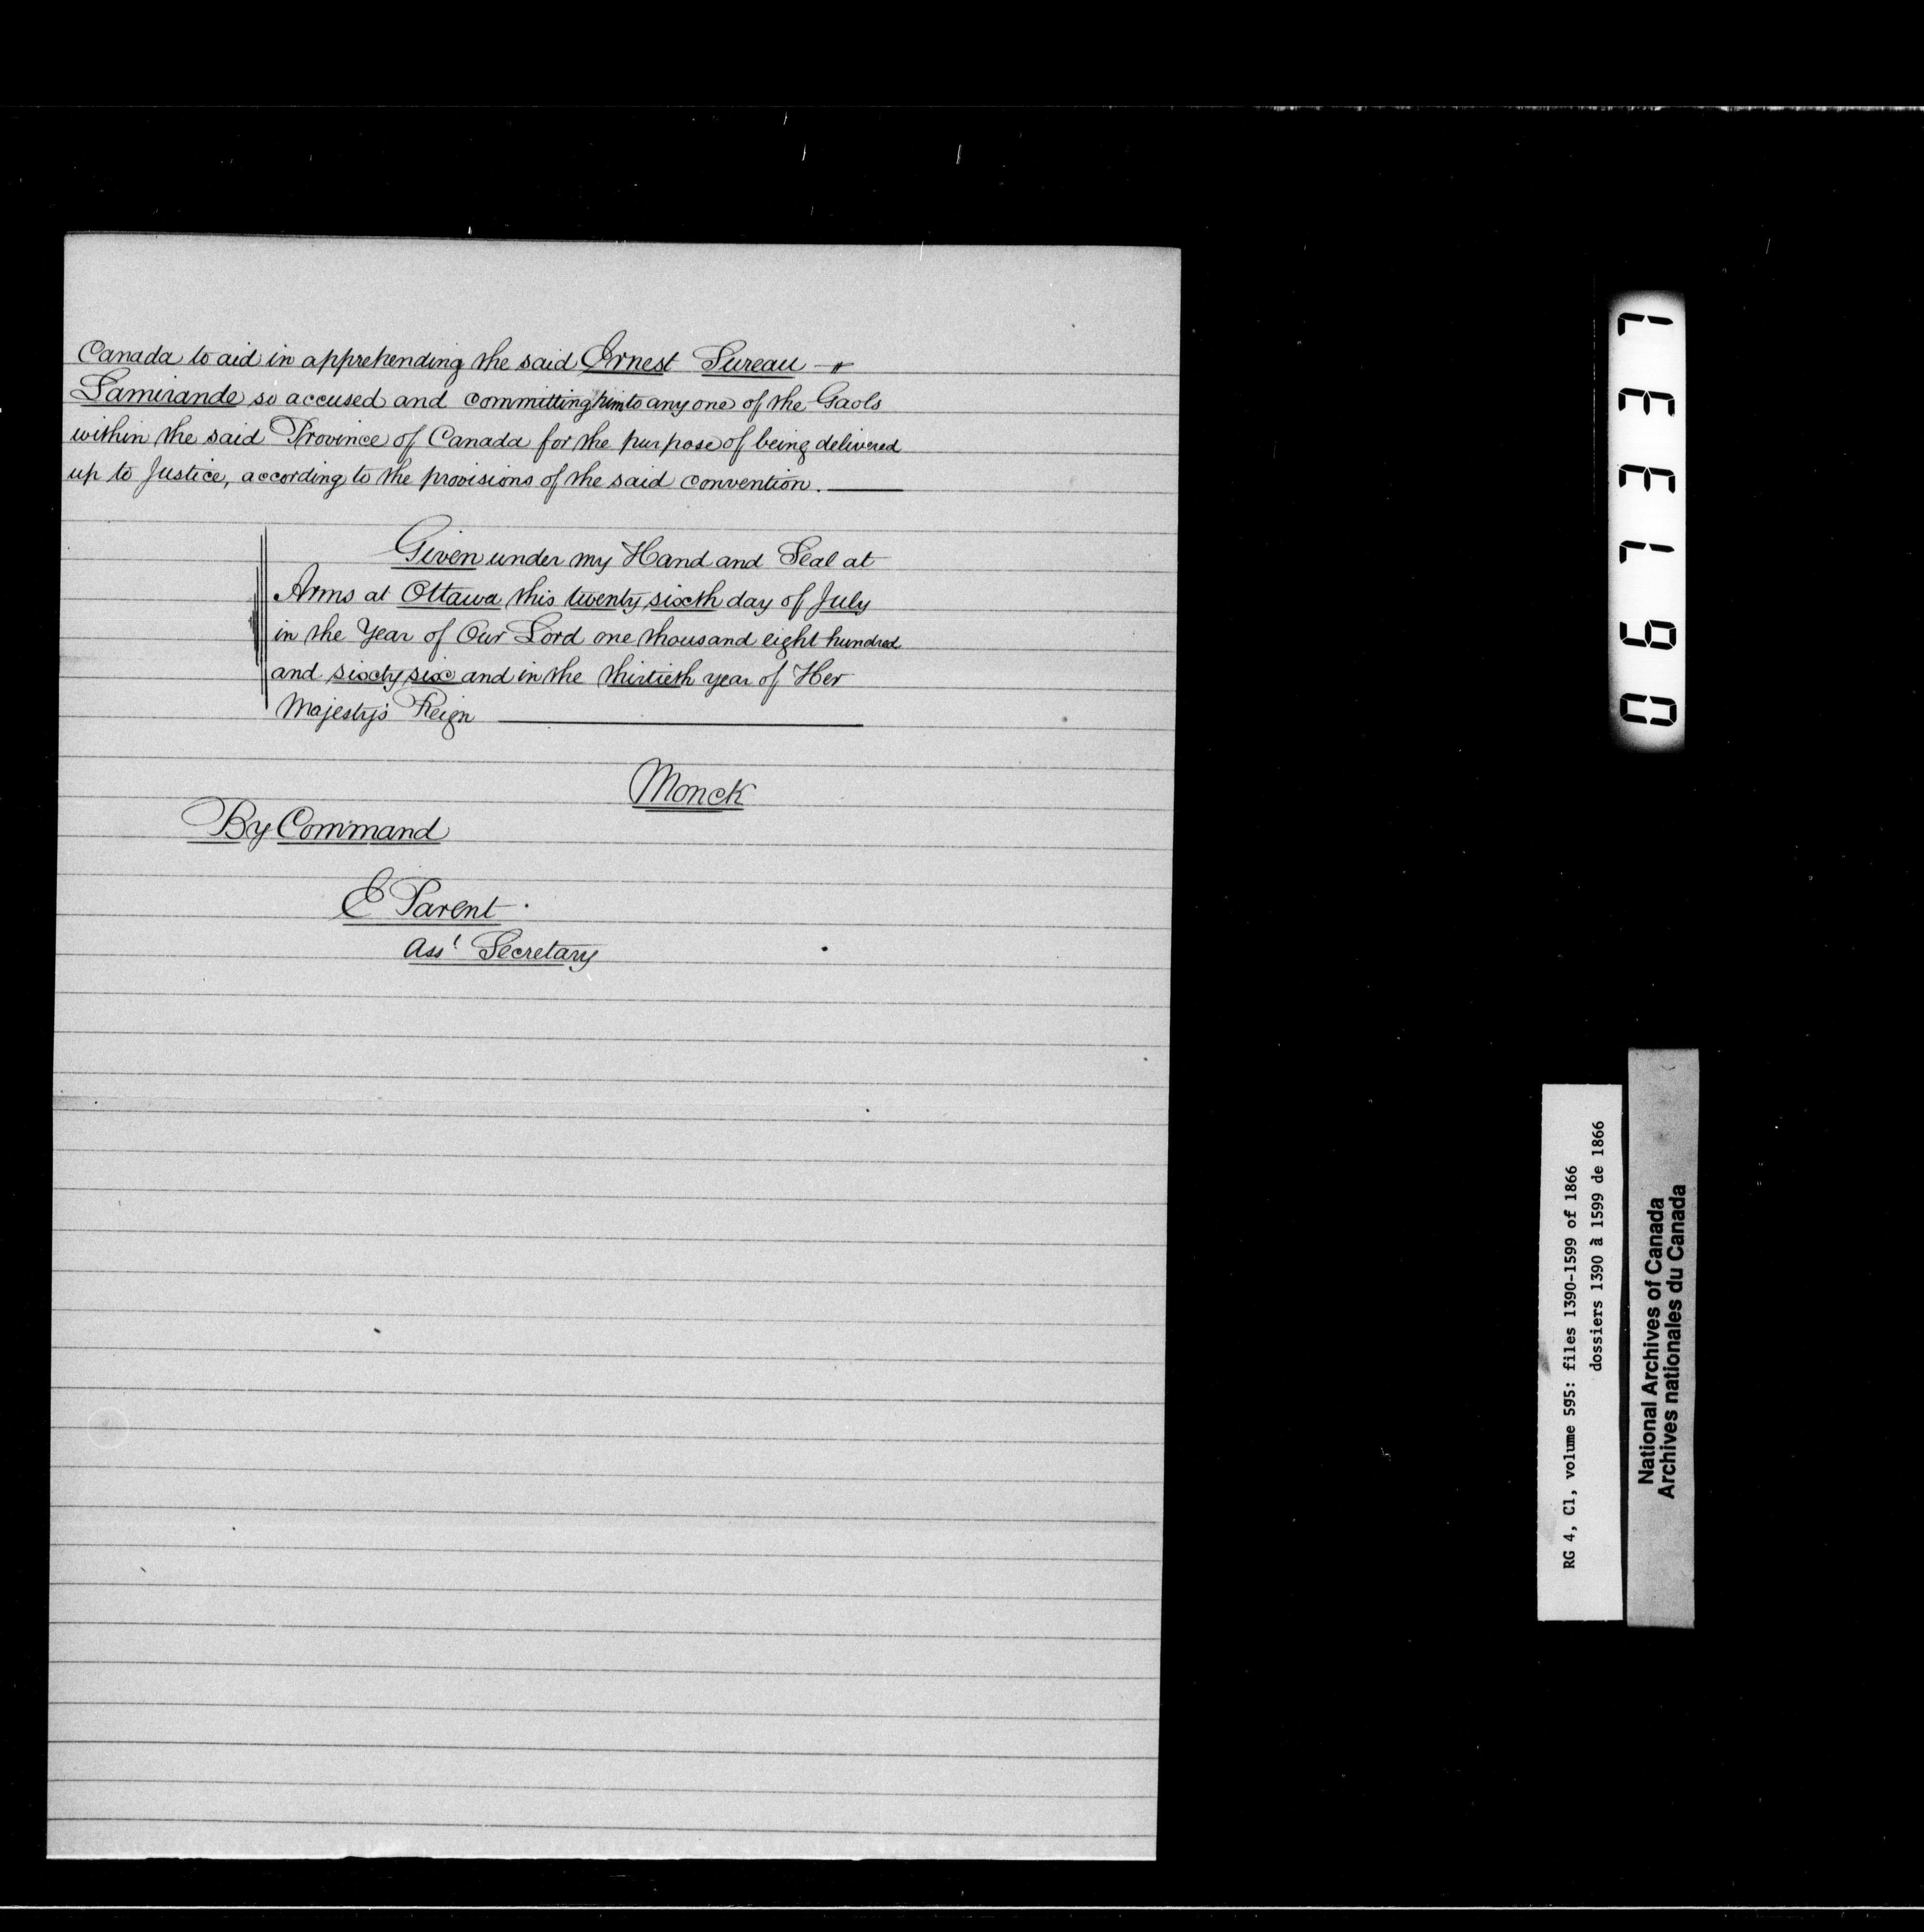 Canada to aid in apprehending the said Ernest Sureau
Lamirande so accused and committing him to any one of the Gaols
within the said Province of Canada for the purpose of being delivered
up to Justice, according to the provisions of the said convention.
Given under my Hand and Seal at
Arms at Ottawa this twenty sixth day of July
in the Year of Our Lord one thousand eight hundred
and sixty six and in the thirtieth year of Her
Majesty's Reign
Monck
By Command
E Parent.
Asst Secretary
061337
RG 4, C1, volume 595: files 1390-1599 of 1866
dossiers 1390 à 1599 de 1866
National Archives of Canada
Archives nationales du Canada